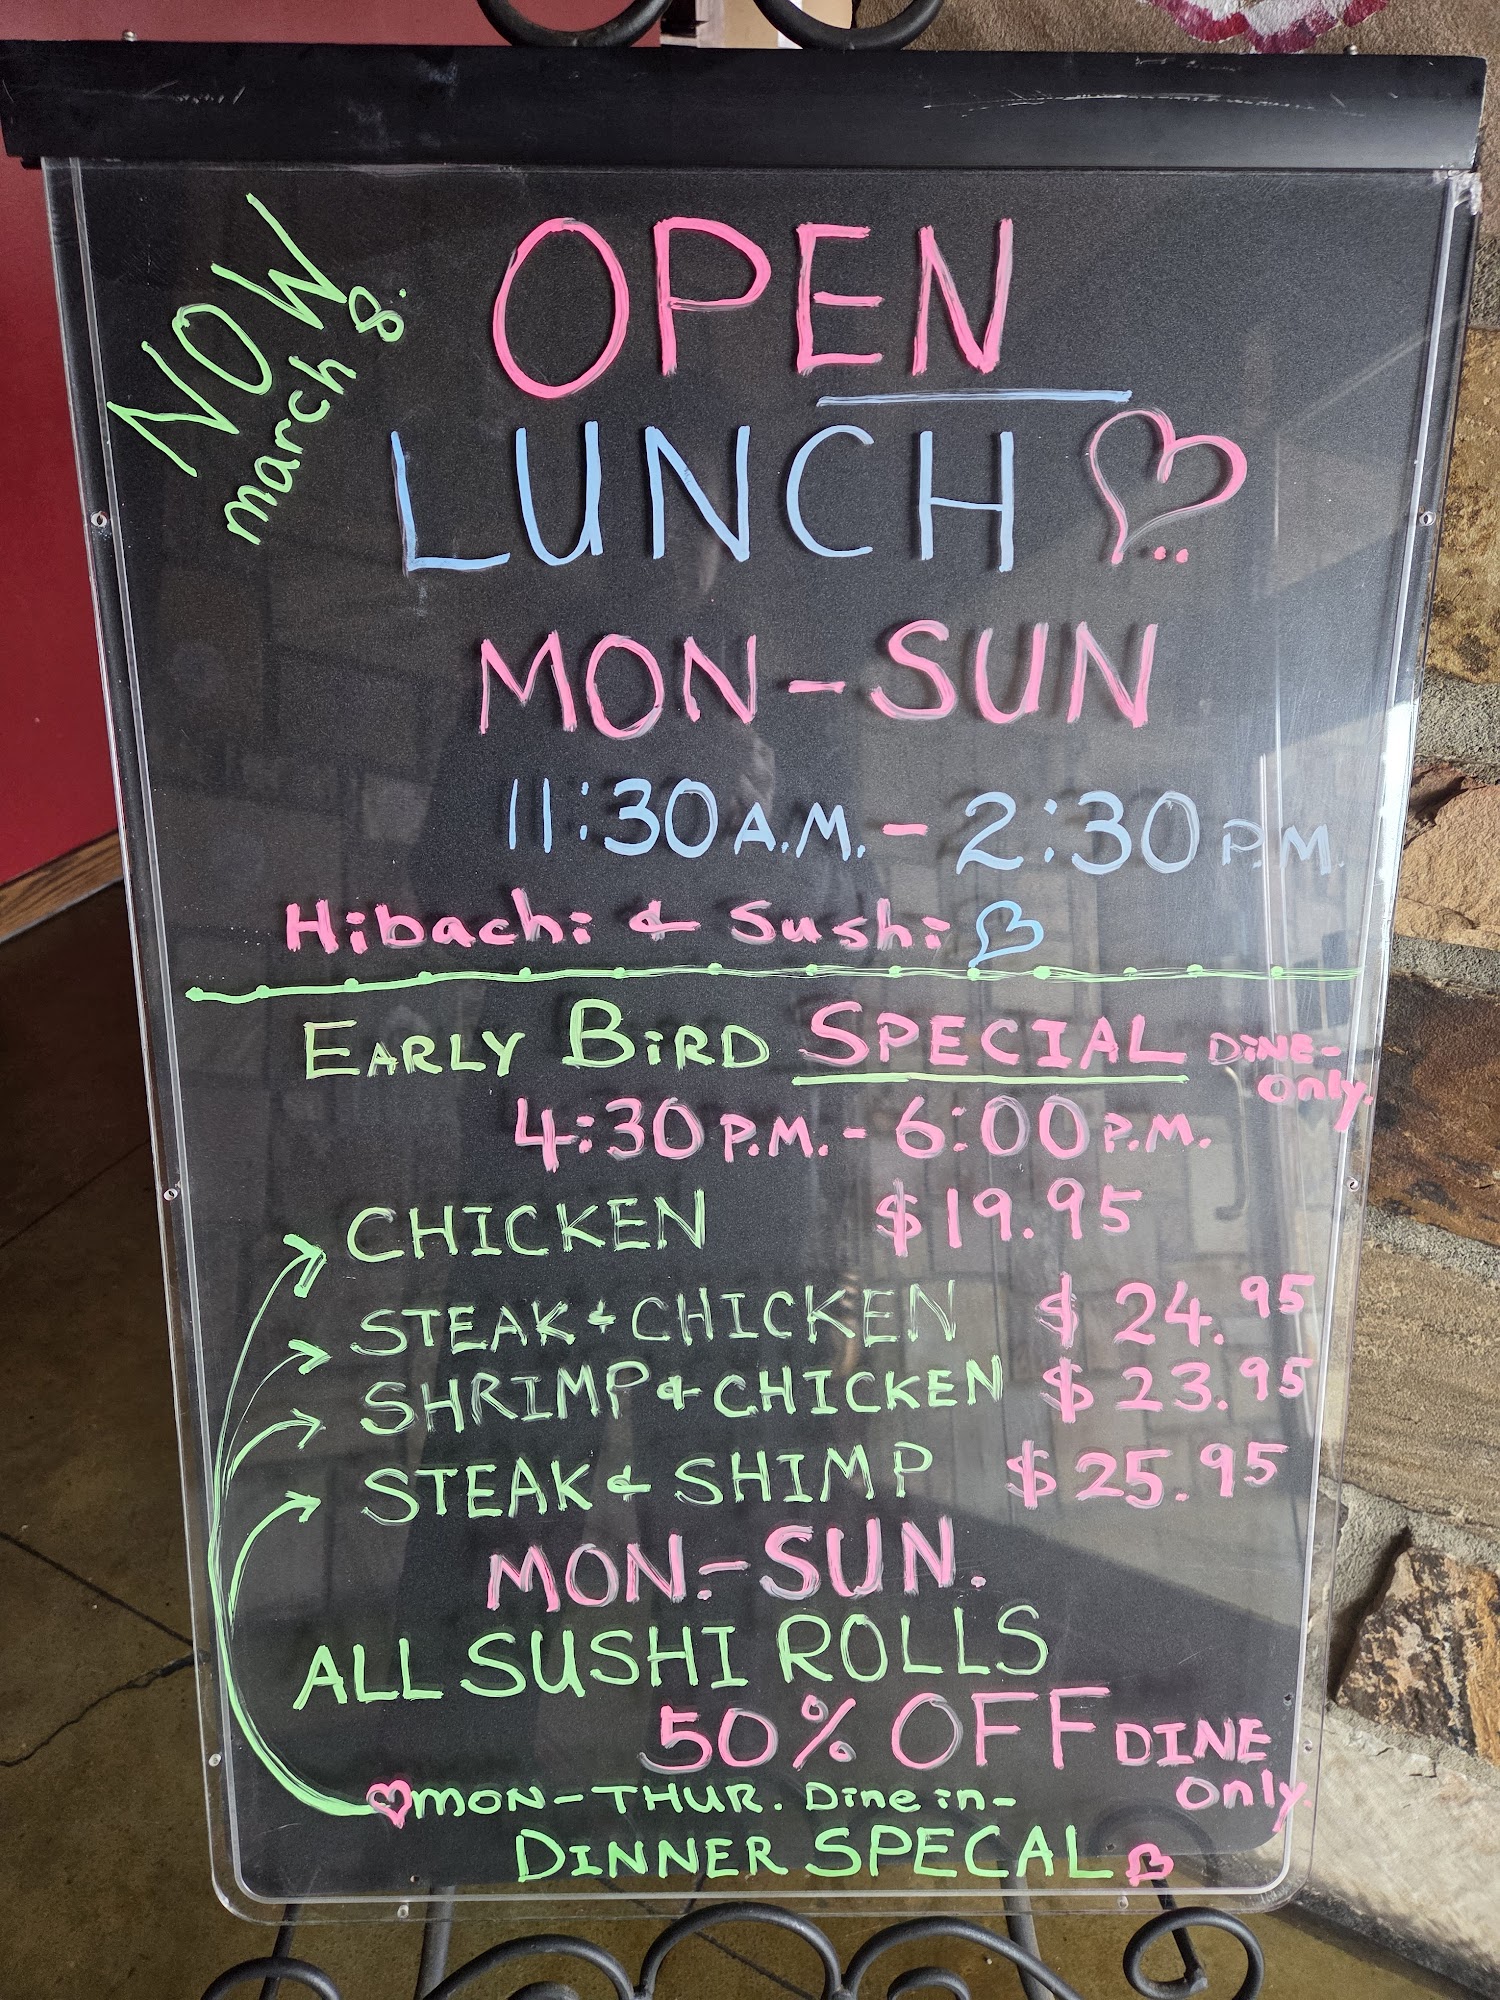 NOW
march 8.
OPEN
LUNCH
MON-SUN
11:30 A.M. - 2:30 P.M.
Hibachi & Sushi
EARLY BIRD SPECIAL DINE-
Only.
4:30 P.M. - 6:00 P.M.
CHICKEN $19.95
STEAK & CHICKEN $24.95
SHRIMP & CHICKEN $23.95
STEAK & SHIMP $25.95
MON.-SUN.
ALL SUSHI ROLLS
50% OFF DINE
Only.
MON-THUR. Dine in-
DINNER SPECAL